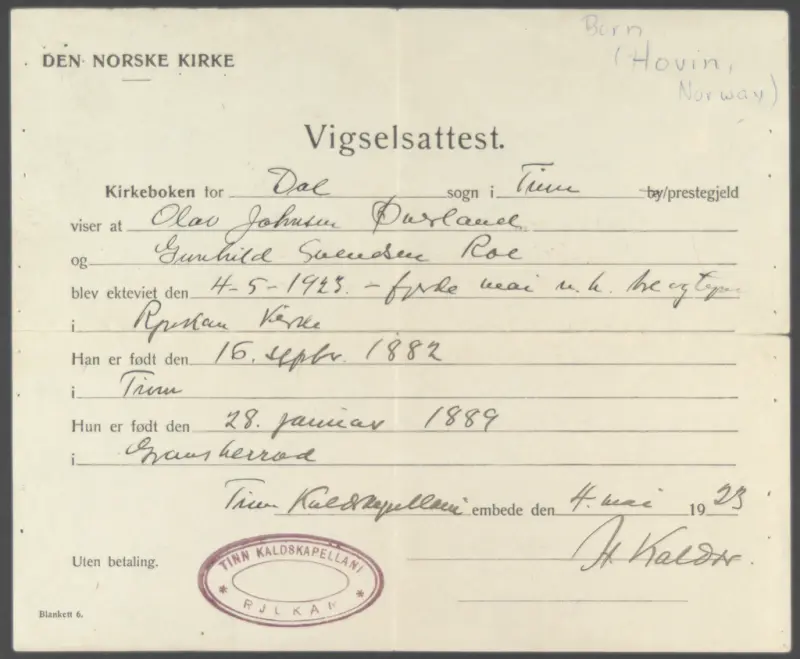 DEN NORSKE KIRKE
Born
(Hovin,
Norway)
Vigselsattest.
Kirkeboken for Dal sogn i Tinn by/prestegjeld
viser at Olav Johnsen Øverland
og Gunhild Svendsen Roe
blev ekteviet den 4-5-1923. - fjerde mai n.h. tre og tyve
i Rjukan Kirke
Han er født den 16. septbr. 1882
i Tinn
Hun er født den 28. januar 1889
i Gransherrad
Tinn Kaldskapellani embede den 4. mai 1923
Uten betaling.
TINN KALDSKAPELLANI
* RJUKAN *
Blankett 6.